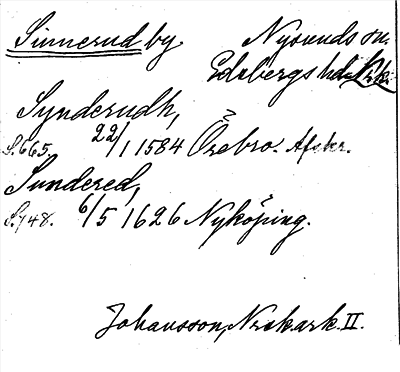 Sinnerud by Nysunds sn.
Edsbergs hd.
Synderudh,
S. 665. 22/1 1584 Örebro. Afskr.
Sundered,
S. 748. 6/5 1626 Nyköping.
Johansson, Norskark. II.